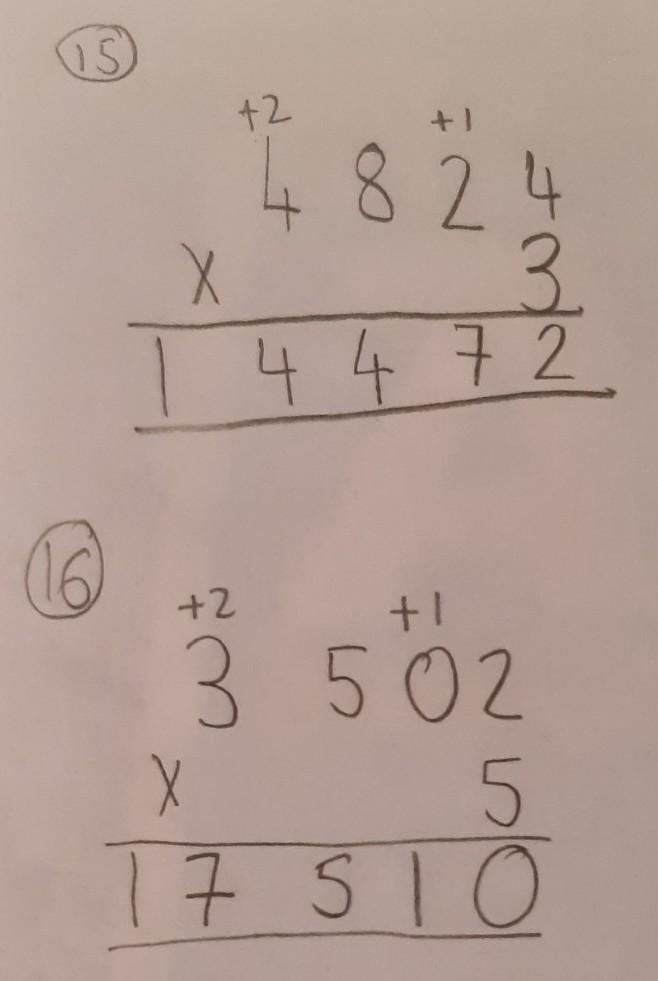 15
+2 +1
4 8 2 4
x 3
1 4 4 7 2
16
+2 +1
3 5 0 2
x 5
1 7 5 1 0